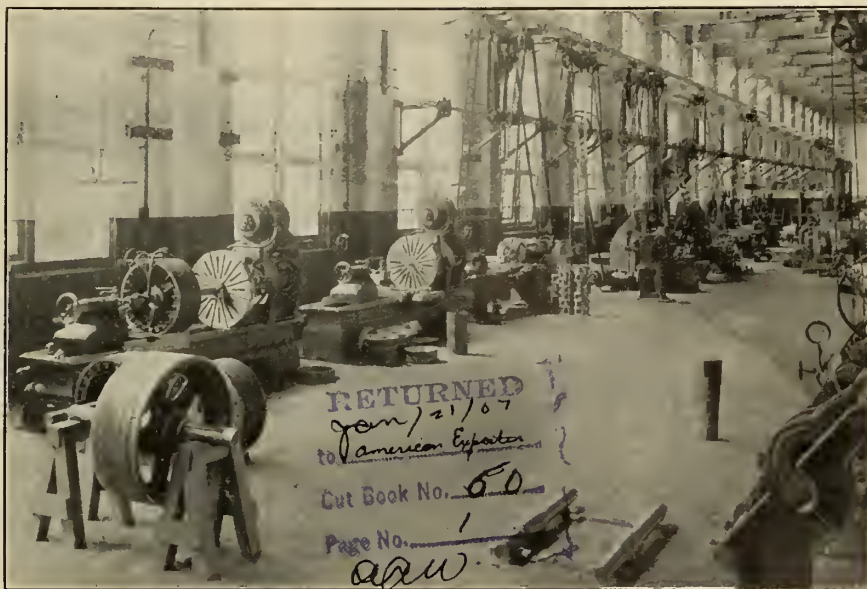 RETURNED
Jan/21/07
to American Exporter
Cut Book No. 60
Page No. 1